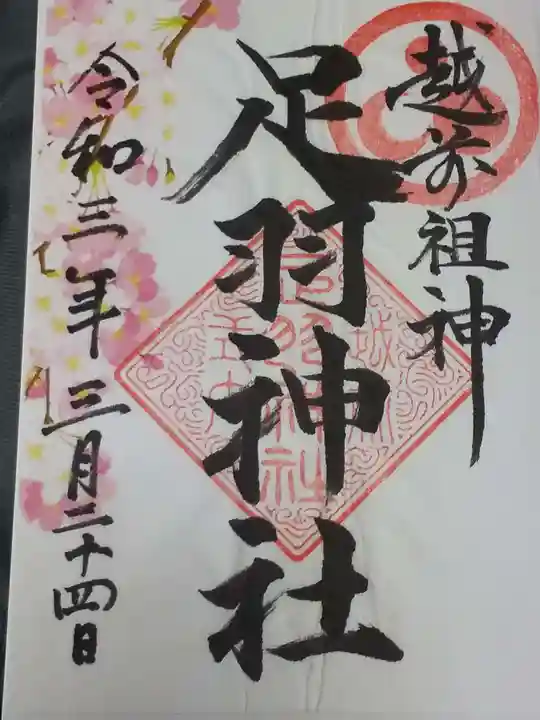 越前祖神
足羽神社
令和三年三月二十四日